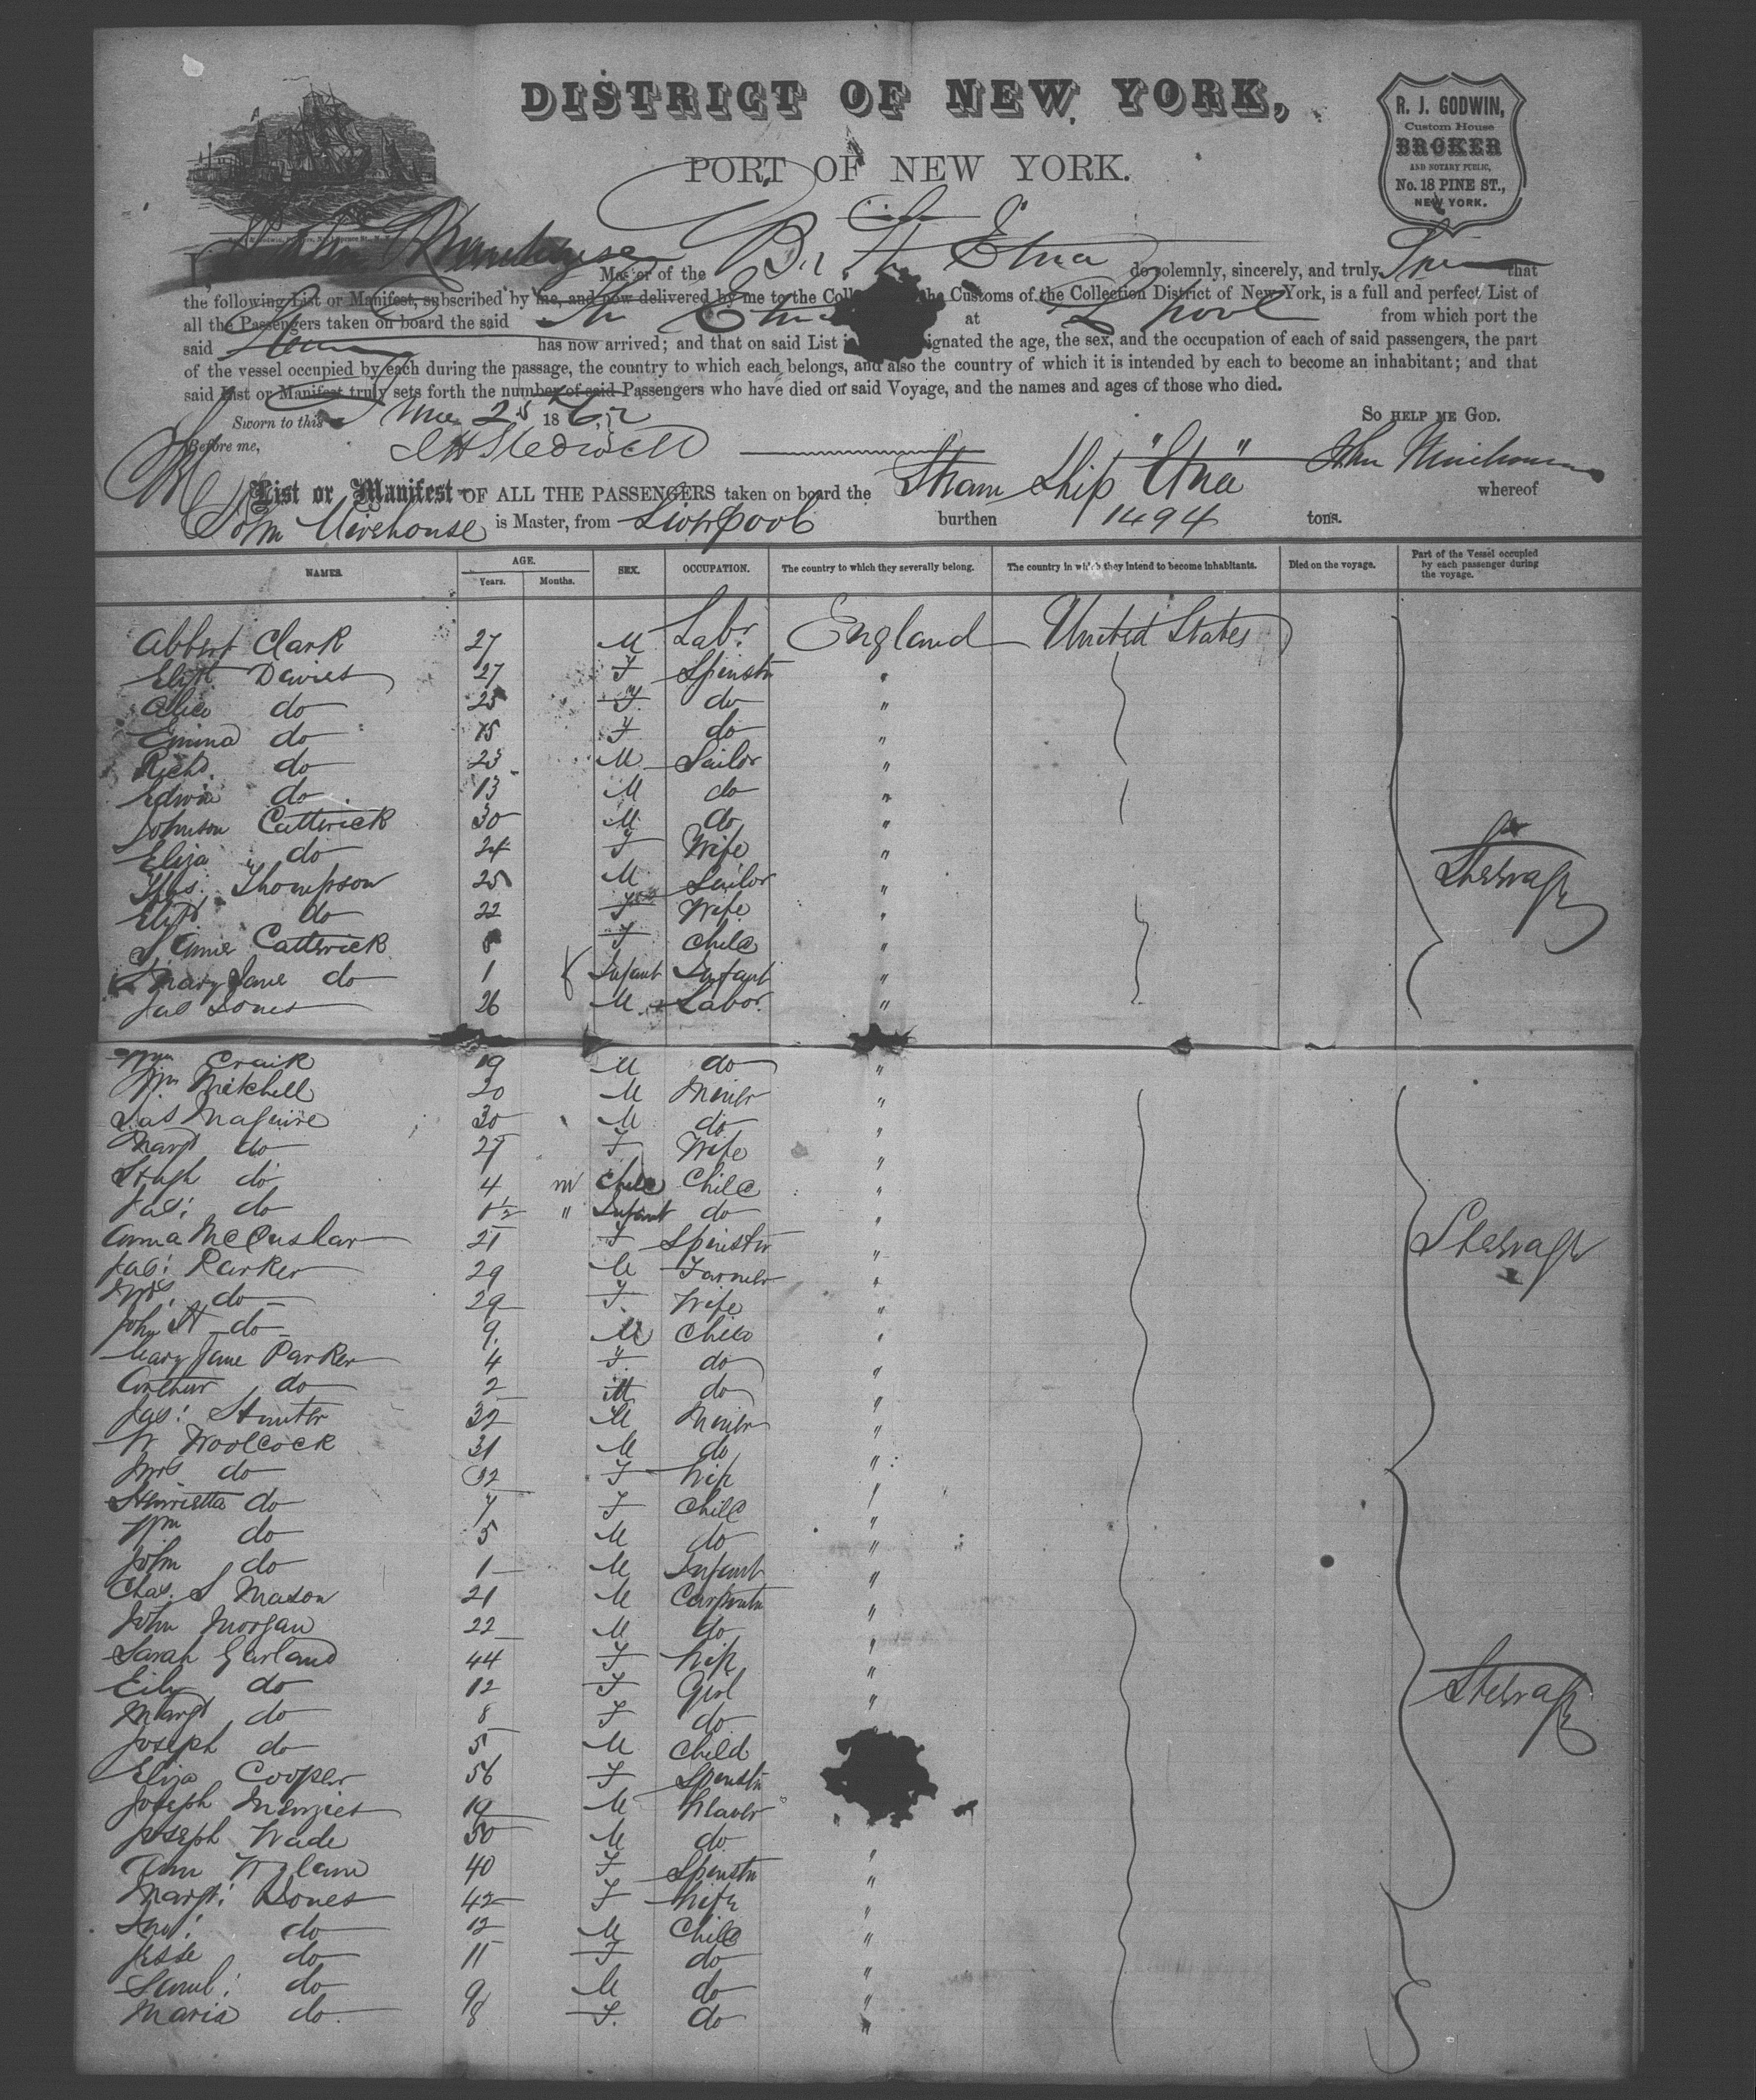 DISTRICT OF NEW YORK,
PORT OF NEW YORK.
R. J. GODWIN,
Custom House
BROKER
AND NOTARY PUBLIC,
No. 18 PINE ST.,
NEW YORK.
I, Master of the Br. St. Etna do solemnly, sincerely, and truly that
the following List or Manifest, subscribed by me, and now delivered by me to the Customs of the Collection District of New York, is a full and perfect List of
all the Passengers taken on board the said Etna at L'pool from which port the
said has now arrived; and that on said List the age, the sex, and the occupation of each of said passengers, the part
of the vessel occupied by each during the passage, the country to which each belongs, and also the country of which it is intended by each to become an inhabitant; and that
said List or Manifest truly sets forth the number of said Passengers who have died on said Voyage, and the names and ages of those who died.
Sworn to this June 25 1862 SO HELP ME GOD.
Before me,
List or Manifest OF ALL THE PASSENGERS taken on board the Steam Ship "Etna" whereof
John Mirehouse is Master, from Liverpool burthen 1494 tons.
NAMES. AGE. Years. Months. SEX. OCCUPATION. The country to which they severally belong. The country in which they intend to become inhabitants. Died on the voyage. Part of the Vessel occupied by each passenger during the voyage.
Albert Clark 27 M Labr. England United States
Elizth Davies 27 F Spinstr "
Alice do 25 F do "
Emma do 15 F do "
Richd. do 23 M Sailor "
Edwin do 13 M do "
Johnson Catterick 30 M do "
Eliza do 24 F Wife " Steerage
Thos. Thompson 25 M Sailor "
Elizth do 22 F Wife "
Annie Catterick F Child "
Mary Jane do 1 Infant Infant "
Jas Jones 26 M Labor. "
Wm Craik 19 M do "
Wm Mitchell 20 M Miner "
Jas Maguire 30 M do "
Margt do 27 F Wife "
Hugh do 4 m Child Child "
Jas: do " Infant do "
Anna McCushar 21 F Spinster " Steerage
Jas: Parker 29 M Farmer "
Mrs. do 29 F. Wife "
John H do 9. M Child "
Mary Jane Parker 4 F. do "
Arthur do 2 M do "
Jas: Hunter 32 M Miner "
W Woolcock 31 M do "
Mrs do 32 F Wife "
Henrietta do 7 F Child "
Wm do 5 M do "
John do 1 M Infant "
Chas. S Mason 21 M Carpentr "
John Morgan 22 M do "
Sarah Garland 44 F Wife "
Eily do 12 F Girl " Steerage
Margt do 8 F do "
Joseph do 5 M Child
Eliza Cooper 56 F Spinstr
Joseph Menzies 19 M Weaver
Joseph Wade 50 M do "
Ann Wylam 40 F Spinstr "
Margt: Jones 42 F Wife "
Jno: do 12 M Child "
Jesse do 11 F do "
Saml: do 9 M do "
Maria do 8 F. do "